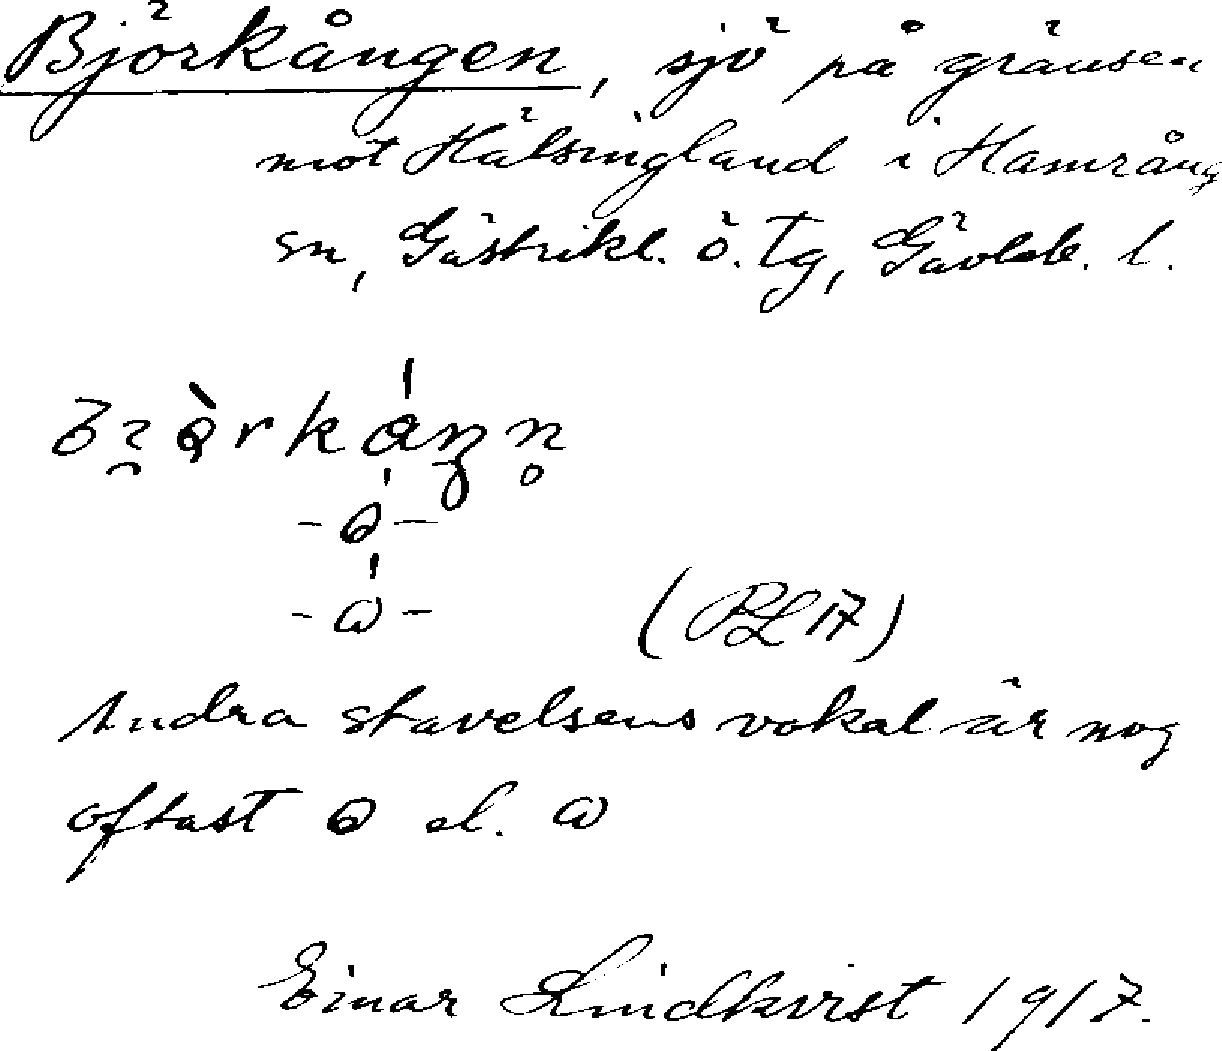 Björkången, sjö på gränsen
mot Hälsingland i Hamrång
sn, Gästrikl. ö. tg, Gävleb. l.
(RL 17)
Andra stavelsens vokal är nog
oftast ɵ el. ɷ
Einar Lindkvist 1917.